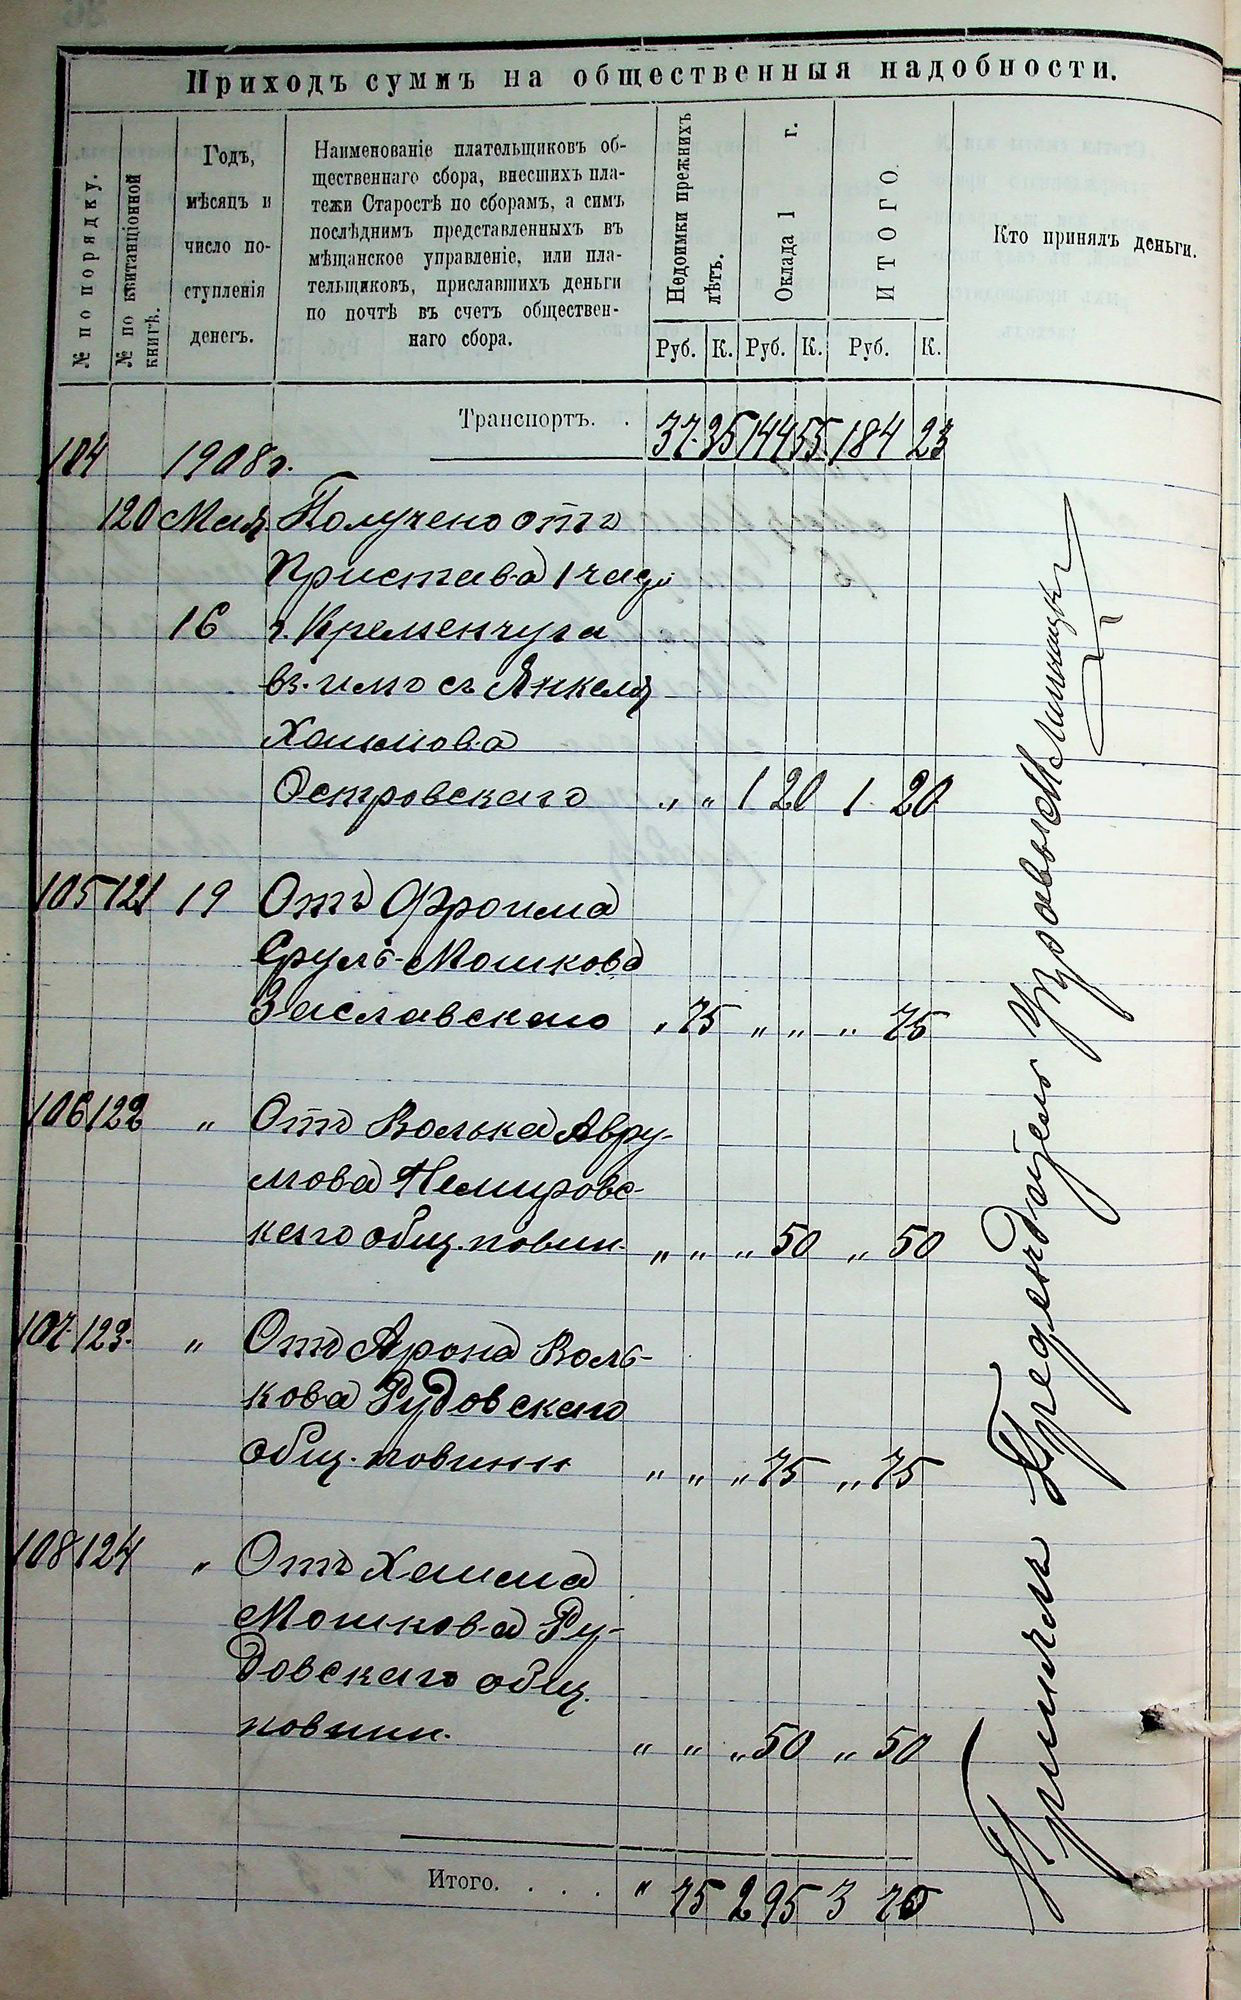 Приходъ суммъ на общественныя надобности.
№ по порядку.
№ по квитанціонной
книгѣ.
Годъ,
мѣсяцъ и
число по-
ступленія
денегъ.
Наименованіе плательщиковъ об-
щественнаго сбора, внесшихъ пла-
тежи Старостѣ по сборамъ, а симъ
послѣднимъ представленныхъ въ
мѣщанское управленіе, или пла-
тельщиковъ, приславшихъ деньги
по почтѣ въ счетъ обществен-
наго сбора.
Недоимки прежнихъ
лѣтъ.
Оклада 1 г.
ИТОГО.
Кто принялъ деньги.
Руб. К. Руб. К. Руб. К.
Транспортъ. . 37. 35 144 55 184 23
104 1908 г.
120 Мая Получено отъ
Пристава 1 час.
16 г. Кременчуга
вз. имъ съ Янкеля
Хаимова
Островскаго „ „ 1 20 1. 20
105 121 19 Отъ Фроима
Сруль-Мошкова
Заславскаго „ 75 „ „ „ 75
106 122 „ Отъ Волька Авру-
мова Немировс-
каго общ. повин. „ „ „ 50 „ 50
107. 123. „ Отъ Арона Воль-
кова Рудовскаго
общ. повинн „ „ „ 75 „ 75
108 124 „ Отъ Хаима
Мошкова Ру-
довскаго общ.
повинн. „ „ „ 50 „ 50
Итого. . . . . „ 75 2 95 3 70
Принялъ